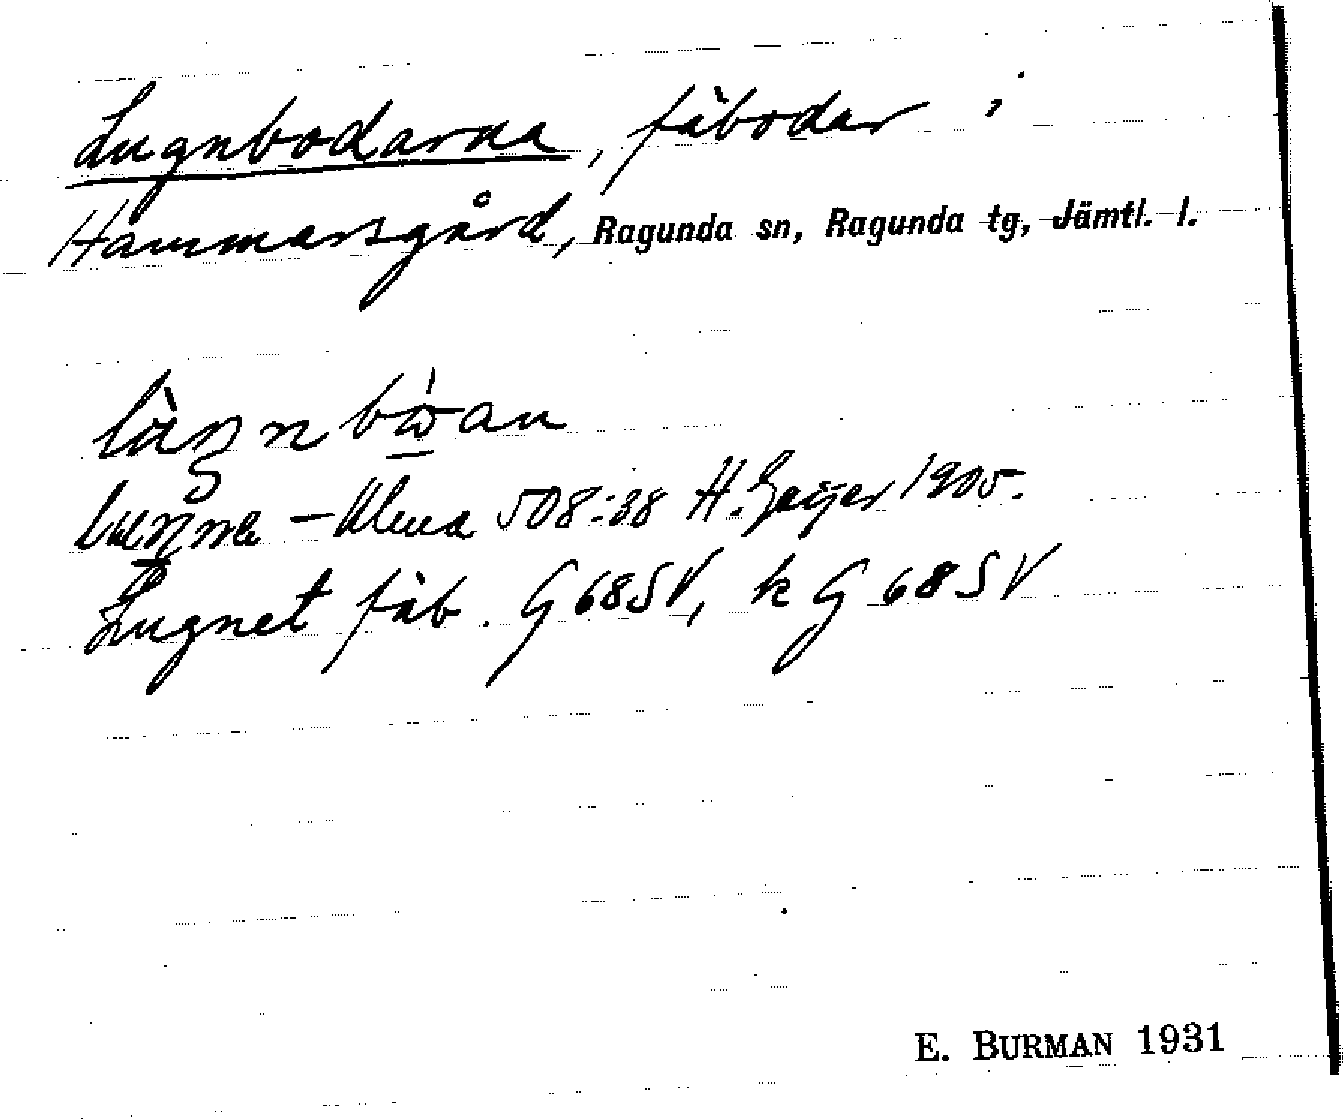 Lugnbodarna, fäbodar i
Hammarsgård, Ragunda sn, Ragunda tg, Jämtl. l.
508:38 H. Geijer 1905.
Lugnet fäb. G 68 SV, k G 68 SV
E. BURMAN 1931